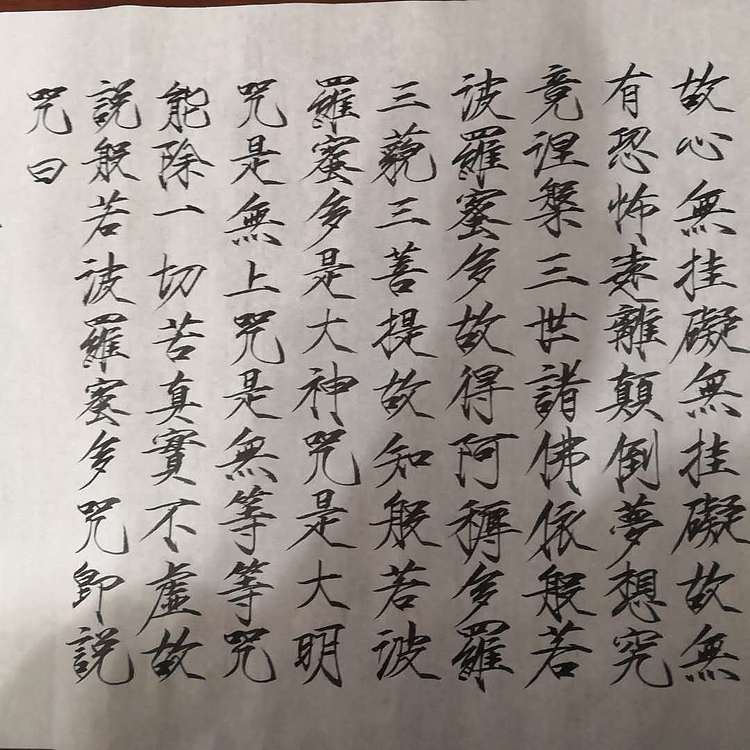 故心無挂礙無挂礙故無
有恐怖遠離顛倒夢想究
竟涅槃三世諸佛依般若
波羅蜜多故得阿耨多羅
三藐三菩提故知般若波
羅蜜多是大神咒是大明
咒是無上咒是無等等咒
能除一切苦真實不虛故
說般若波羅蜜多咒即說
咒曰